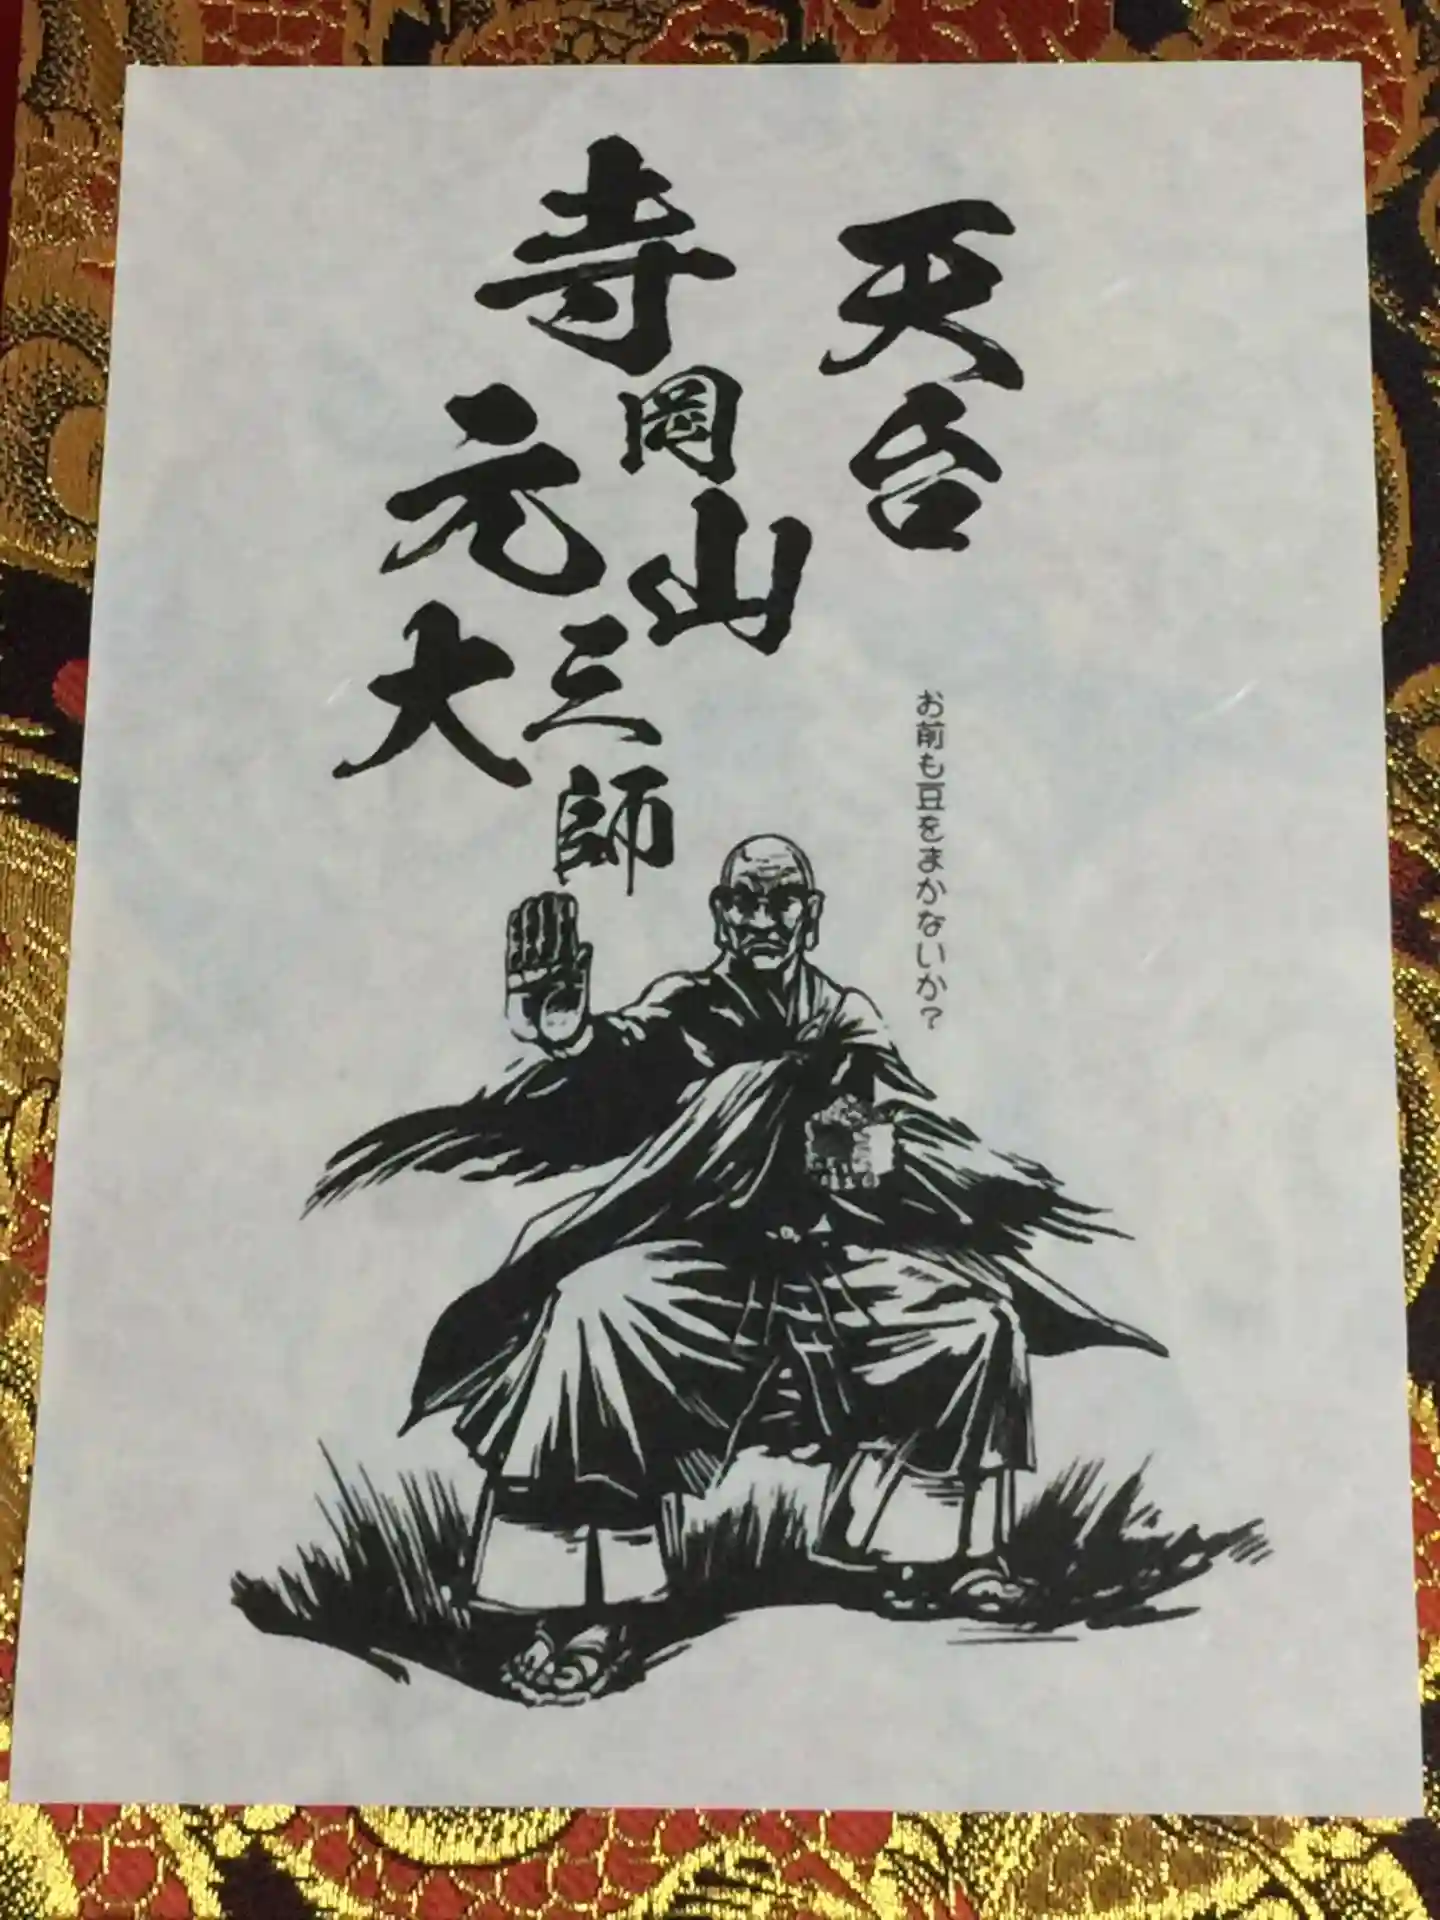 天台
寺岡山
元三大師
お前も豆をまかないか?